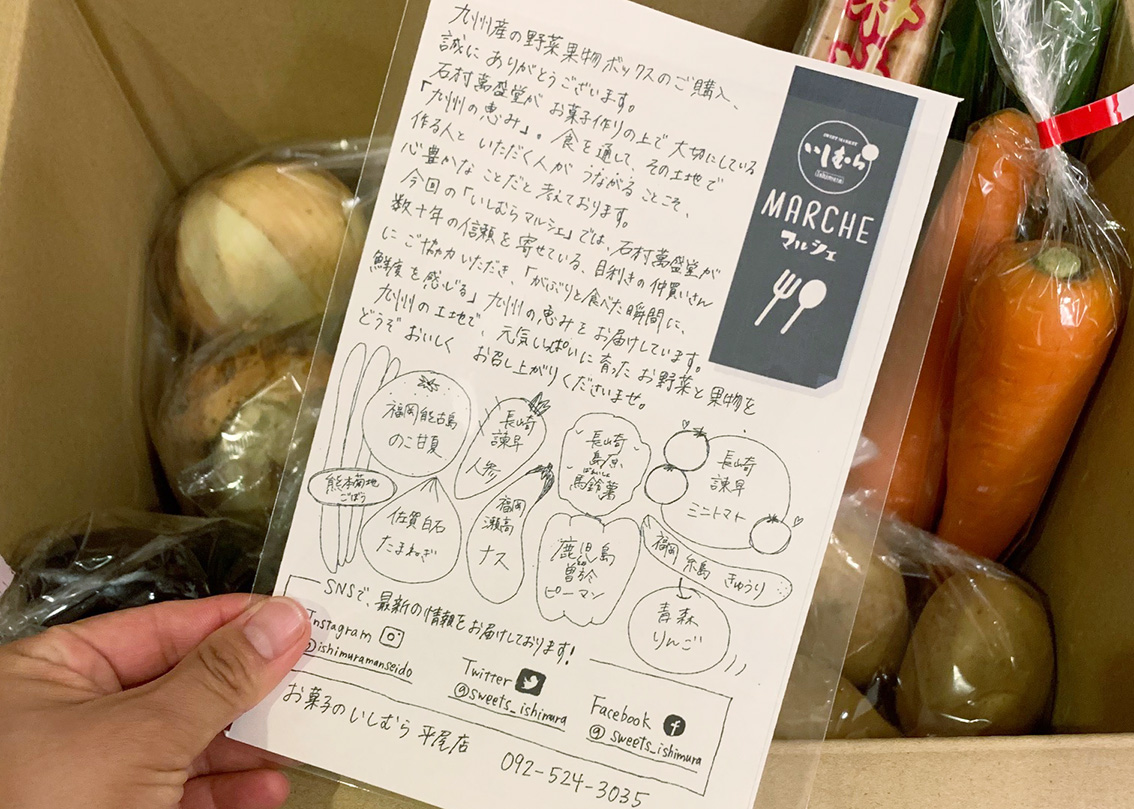 九州産の野菜果物ボックスのご購入、
誠にありがとうございます。
石村萬盛堂がお菓子作りの上で大切にしている
「九州の恵み」。食を通して、その土地で
作る人といただく人がつながることこそ、
心豊かなことだと考えております。
今回の「いしむらマルシェ」では、石村萬盛堂が
数十年の信頼を寄せている、目利きの仲買いさん
にご協力いただき、「がぶりと食べた瞬間に、
鮮度を感じる」九州の恵みをお届けしています。
九州の土地で、元気いっぱいに育ったお野菜と果物を、
どうぞおいしくお召し上がりくださいませ。
いしむら
Ishimura
MARCHE
マルシェ
福岡能古島
のこ甘夏
長崎
諫早
人参
長崎
島原
ばれいしょ
馬鈴薯
長崎
諫早
ミニトマト
熊本菊地
ごぼう
佐賀白石
たまねぎ
福岡
瀬高
ナス
鹿児島
曽於
ピーマン
福岡 糸島 きゅうり
青森
りんご
SNSで、最新の情報をお届けしております!
Instagram
@ishimuramanseido
Twitter
@sweets_ishimura
Facebook
@sweets_ishimura
お菓子のいしむら 平尾店
092-524-3035